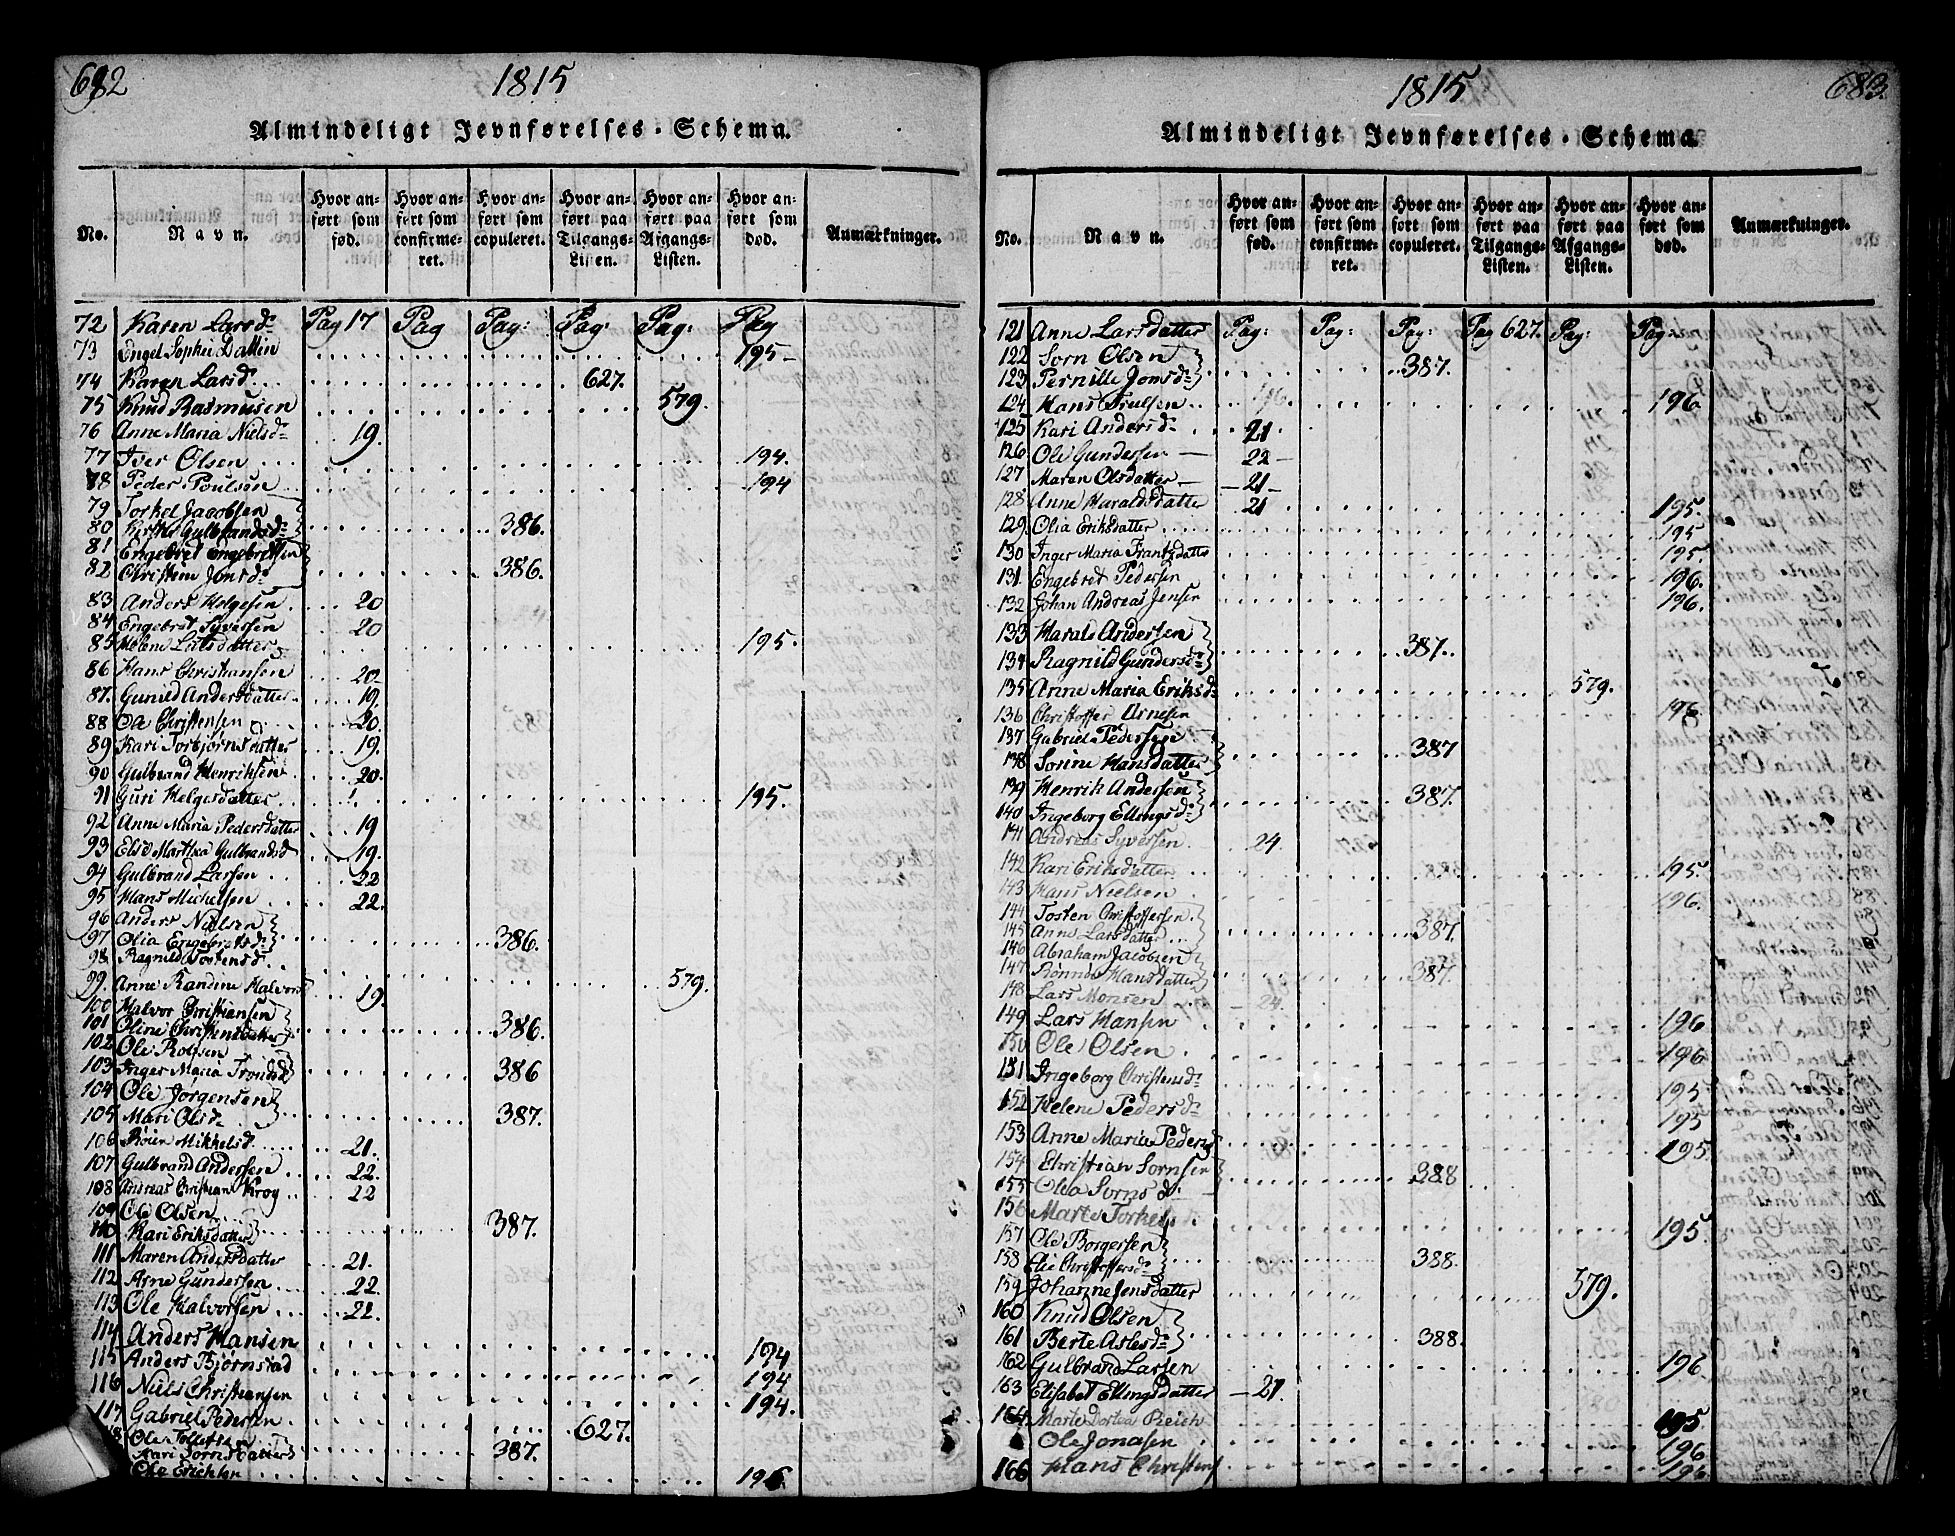 682
1815
Almindeligt Jevnførelses-Schema.
No. Navn. Hvor anført som fød. Hvor anført som confirmeret. Hvor anført som copuleret. Hvor anført paa Tilgangs-Listen. Hvor anført paa Afgangs-Listen. Hvor anført som død. Anmærkninger.
72 Karen Larsd. Pag 17 Pag Pag: Pag: Pag: Pag
73 Engel Sophei Dattin 195
74 Karen Larsd. 627.
75 Knud Rasmusen 579.
76 Anne Maria Nielsd. 19.
77 Iver Olsen 194.
78 Peder Poulson 194
79 Torkel Jacobsen
80 Kirstie Gulbrandsd. 386.
81 Engebret Engebretsen
82 Christein Jonsd. 386.
83 Anders Helgesen 20
84 Engebret Syversen 20
85 Helene Larsdatter 195.
86 Hans Christiansen 22
87. Gunild Andersdatter 19.
88 Ole Christensen 20.
89 Kari Torbjørnsdatter 19.
90 Gulbrand Henriksen 20.
91 Guri Helgesdatter 195.
92 Anne Maria Pedersdatter 19
93 Else Marthea Gulbrandsd 19.
94 Gulbrand Larsen 22
95 Hans Michelsen 22.
96 Anders Nielsen
97 Olia Engebretsd. 386.
98 Ragnild Tostensd. 579.
99 Anne Randine Halvors 19.
100 Halvor Christiansen
101 Oline Christensdatter 386.
102 Ole Rolfsen
103 Inger Maria Trondsd 386
104 Ole Jørgensen
105 Mari Olsd. 387.
106 Røien Mikkelsd. 21.
107 Gulbrand Andersen 22.
108 Andreas Christian Krog 22
109 Ole Olsen
110 Kari Eriksdatter 387.
111 Maren Andersdatter 21.
112 Arne Gundersen 22.
113 Ole Halvorsen 22.
114 Anders Hansen 194
115 Anders Bjørnstad 194
116 Niels Christiansen 194.
117 Gabriel Pedersen 627.
Ole Tollefsen
Kari Sornsdatter 387.
Ole Erichsen 196
683
1815
Almindeligt Jevnførelses-Schema
No. Navn. Hvor anført som fød. Hvor anført som confirmeret. Hvor anført som copuleret. Hvor anført paa Tilgangs-Listen. Hvor anført paa Afgangs-Listen. Hvor anført som død. Anmærkninger.
121 Anne Larsdatter Pag: Pag: Pag: Pag 627. Pag: Pag:
122 Sorn Olsen
123 Pernille Jonsd. 387.
124 Hans Trulsen 196
125 Kari Andersd. 21
126 Ole Gundersen 22
127 Maren Olsdatter 21
128 Anne Haraldsdatter 21
129. Olia Eriksdatter 195.
130 Inger Maria Frantzdatte 195
131. Engebret Pedersen 196.
132 Johan Andreas Jensen 196.
133 Harald Andersen
134 Ragnild Gundersd. 387.
135 Anne Maria Eriksd. 579.
136 Christoffer Arnesen 196
137 Gabriel Pedersen
138 Sorine Hansdatter 387
139 Henrik Andersen
140 Ingeborg Ellingsd. 387.
141 Andreas Syversen 24.
142 Kari Eriksdatter 195.
143 Hans Nielsen 196.
144 Tosten Christoffersen
145 Anne Larsdatter 387.
146 Abraham Jacobsen
147 Rønnde Hansdatter 387.
148 Lars Monsen 24.
149 Lars Hansen 196
150 Ole Olsen 196
151 Ingeborg Christensd. 195
152 Helene Pedersd. 195
153 Anne Maria Peders 195
154 Christian Sornsen
155 Olea Sorns d. 388
156 Marte Torkels 195
157 Ole Borgersen
158 Elie Christoffersd. 388.
159 Johanne Jensdatter 579.
160 Knud Olsen
161 Berte Aslesd. 388.
162 Gulbrand Larsen 196
163 Elisabet Ellingsdatter 21
164 Marte Dortea Reich 195
Ole Jonasen 196
166 Hans Christens 196